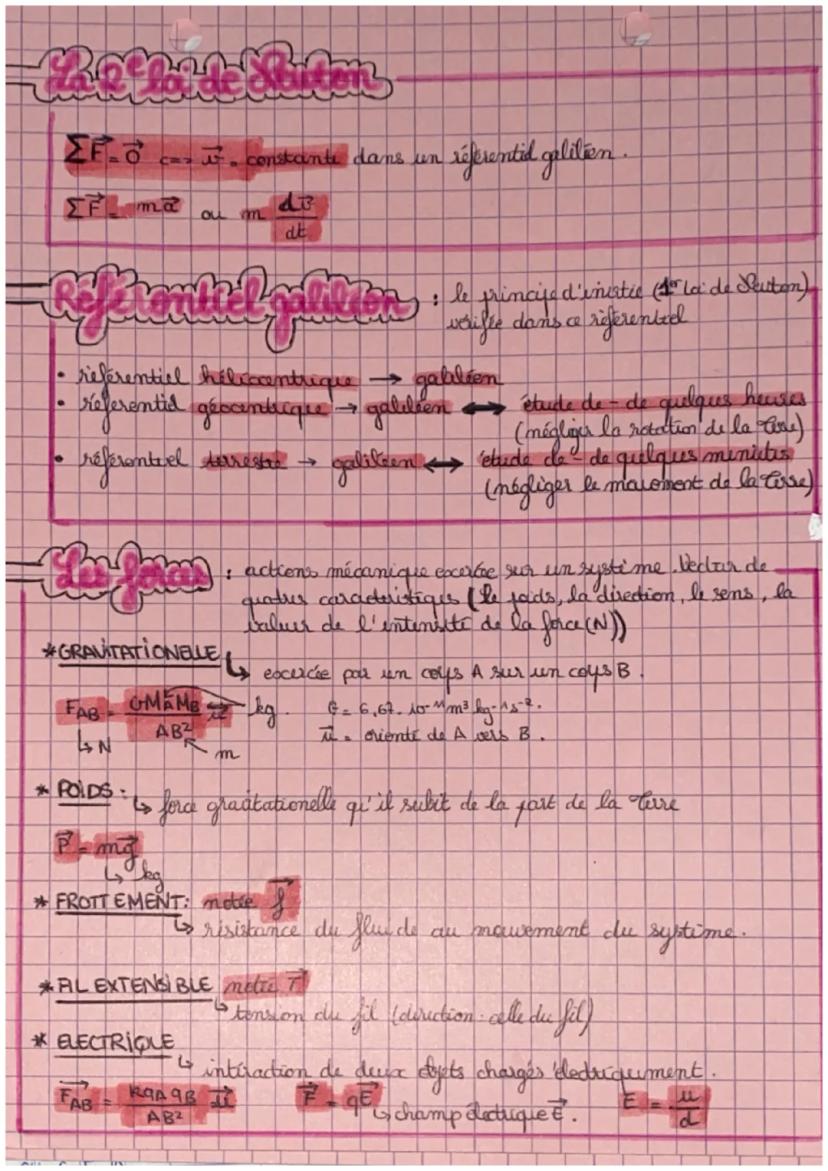 La 2e loi de Newton
ΣF⃗ = 0⃗ <=> v⃗ = constante dans un référentiel galiléen.
ΣF⃗ = ma⃗ ou m dv⃗/dt
Référentiel galiléen : le principe d'inertie (1er Loi de Newton)
vérifie dans ce référentiel
• référentiel héliocentrique → galiléen
• référentiel géocentrique → galiléen ↔ étude de - de quelques heures
(négliger la rotation de la Terre)
• référentiel terrestre → galiléen ↔ étude de - de quelques minutes
(négliger le mouvement de la Terre)
Les forces : actions mécanique excercée sur un système. Vecteur de
quatres caractéristiques (le poids, la direction, le sens, la
valeur de l'intensité de la force (N))
*GRAVITATIONELLE
↳ excercée par un corps A sur un corps B.
F_AB = GM_A M_B / AB² u⃗ kg. G = 6,67.10⁻¹¹ m³ kg⁻¹ s⁻².
↳ N m u⃗ = orienté de A vers B.
* POIDS : ↳ force gravitationelle qu'il subit de la part de la Terre
P⃗ = mg⃗
↳ kg
* FROTTEMENT: notée f⃗
↳ résistance du fluide au mouvement du système.
* FIL EXTENSIBLE notée T⃗
↳ tension du fil (direction : celle du fil)
* ELECTRIQUE
↳ intéraction de deux objets chargés électriquement.
F_AB⃗ = k q_A q_B / AB² u⃗ F⃗ = qE⃗ ↳ champ électrique E⃗. E = u/d